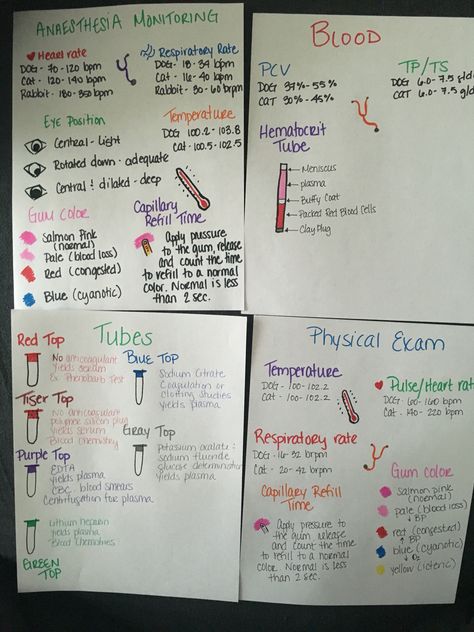 ANAESTHESIA MONITORING
Heart rate
DOG - 70 - 120 bpm
Cat - 120 - 140 bpm
Rabbit - 180 - 350 bpm
Respiratory Rate
DOG - 18 - 34 bpm
Cat - 16 - 40 bpm
Rabbit - 30 - 60 brpm
EYE Position
Central - light
Rotated down - adequate
Central & dilated - deep
Temperature
DOG 100.2 - 103.8
Cat - 100.5 - 102.5
GUM COLOR
Salmon Pink
(normal)
Pale (blood loss)
Red (congested)
Blue (cyanotic)
Capillary
Refill Time
Apply pressure
to the gum, release
and count the time
to refill to a normal
color. Normal is less
than 2 sec.
BLOOD
PCV
DOG 37% - 55%
CAT 30% - 45%
TP/TS
DOG 6.0 - 7.5 g/dl
CAT 6.0 - 7.5 g/dl
Hematocrit
Tube
Meniscus
plasma
Buffy Coat
Packed Red Blood Cells
Clay Plug
Tubes
Red Top
No anticoagulant
Yields serum
Ex. Phenobarb Test
Tiger Top
No anticoagulant
polymer silicon plug
Yields serum
Blood Chemistry
Purple Top
EDTA
Yields plasma
CBC, blood smears
Centrifugation for plasma
Lithium heparin
Yields plasma
Blood Chemistries
GREEN
TOP
Blue TOP
Sodium Citrate
Coagulation or
clotting studies
Yields plasma
Gray Top
Potassium oxalate :
sodium fluoride
glucose determination
Yields plasma
Physical Exam
Temperature
DOG - 100 - 102.2
Cat - 100 - 102.2
Pulse/Heart rat
DOG - 60 - 160 bpm
Cat - 140 - 220 bpm
Respiratory rate
DOG - 16 - 32 brpm
Cat - 20 - 42 brpm
Capillary Refill
Time
Apply pressure to
the gum, release
and count the time
to refill to a normal
color. Normal is less
than 2 sec.
Gum color
Salmon pink
(normal)
pale (blood loss)
↓ BP
red (congested)
↑ BP
blue (cyanotic)
↓ O₂
yellow (icteric)